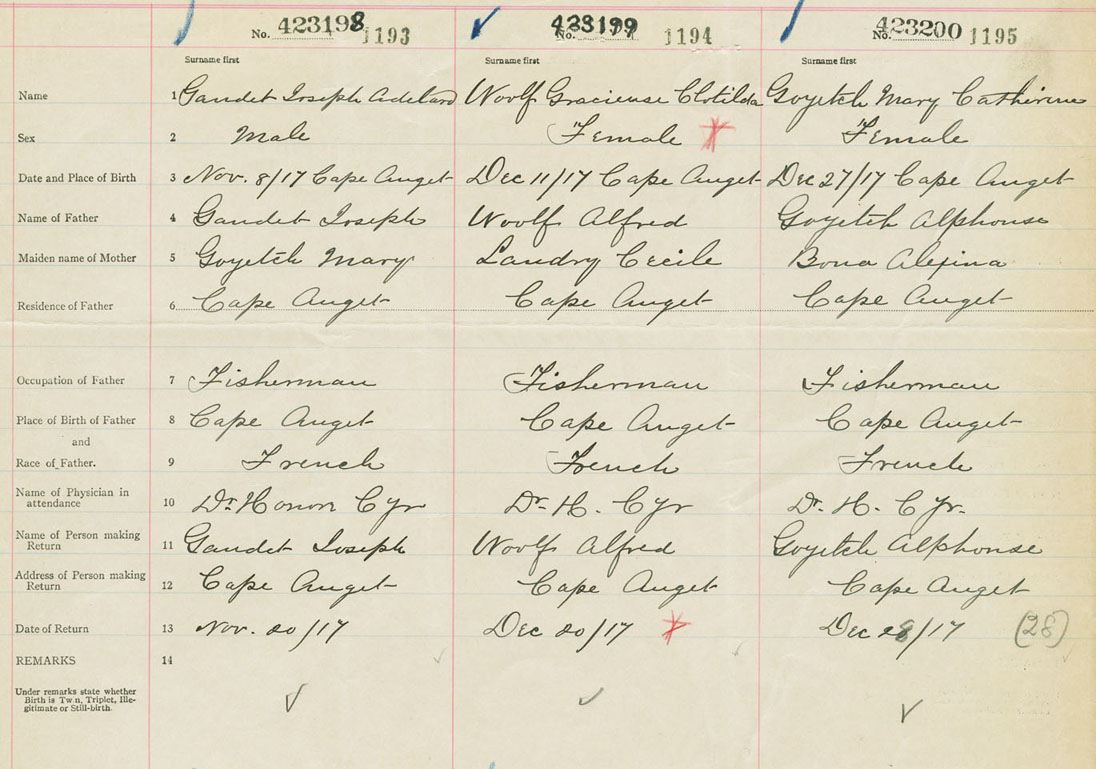 No. 423198 1193 No. 423199 1194 No. 423200 1195
Surname first Surname first Surname first
Name 1 Gaudet Joseph Adelard Woolf Gracieuse Clotilda Goyetch Mary Catherine
Sex 2 Male Female Female
Date and Place of Birth 3 Nov. 8/17 Cape Auget Dec 11/17 Cape Auget Dec 27/17 Cape Auget
Name of Father 4 Gaudet Joseph Woolf Alfred Goyetch Alphonse
Maiden name of Mother 5 Goyetch Mary Landry Cecile Bona Alexina
Residence of Father 6 Cape Auget Cape Auget Cape Auget
Occupation of Father 7 Fisherman Fisherman Fisherman
Place of Birth of Father 8 Cape Auget Cape Auget Cape Auget
and
Race of Father. 9 French French French
Name of Physician in
attendance 10 Dr. Honon Cyr Dr. H. Cyr Dr. H. Cyr.
Name of Person making
Return 11 Gaudet Joseph Woolf Alfred Goyetch Alphonse
Address of Person making
Return 12 Cape Auget Cape Auget Cape Auget
Date of Return 13 Nov. 20/17 Dec 20/17 Dec 28/17 (28)
REMARKS 14
Under remarks state whether
Birth is Twin, Triplet, Ille-
gitimate or Still-birth.